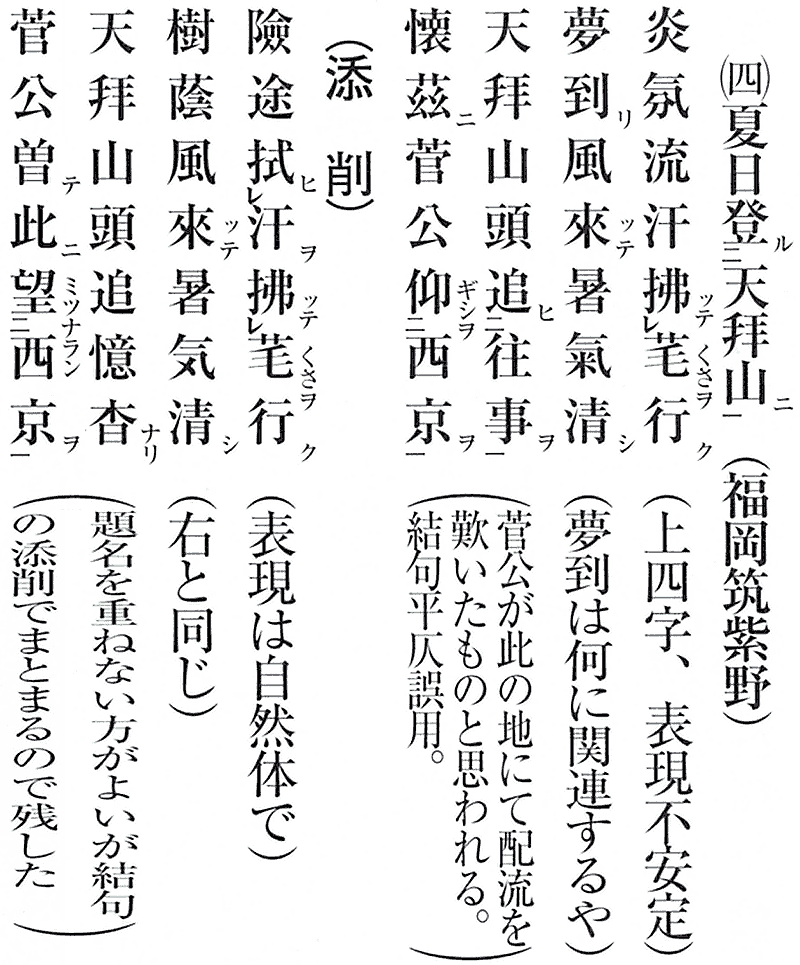 ㈣夏日登ル二天拝山ニ一（福岡筑紫野）
炎氛流汗拂ッテレ芼くさヲ行ク（上四字、表現不安定）
夢到リ風來ッテ暑氣清シ（夢到は何に関連するや）
天拜山頭追ヒ二往事ヲ一（菅公が此の地にて配流を
懐茲ニ菅公仰ギシヲ二西京ヲ一歎いたものと思われる。
結句平仄誤用。）
（添削）
險途拭ヒレ汗ヲ拂ッテレ芼くさヲ行ク（表現は自然体で）
樹蔭風來ッテ暑気清シ（右と同じ）
天拜山頭追憶杳ナリ（題名を重ねない方がよいが結句
菅公曽テ此ニ望ミツナラン二西京ヲ一の添削でまとまるので残した）